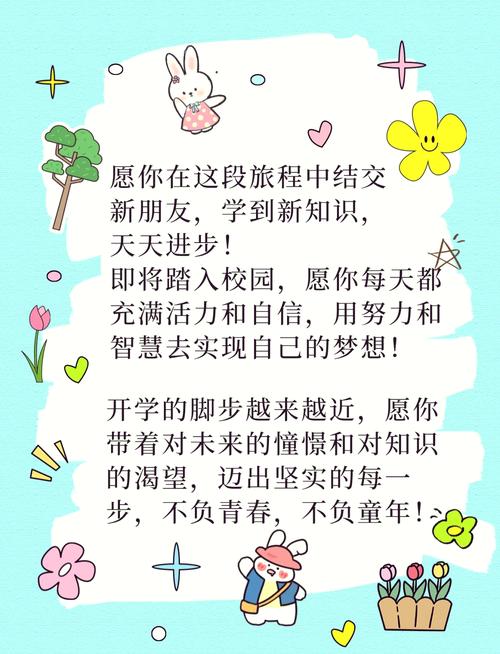 愿你在这段旅程中结交
新朋友，学到新知识，
天天进步！
即将踏入校园，愿你每天都
充满活力和自信，用努力和
智慧去实现自己的梦想！
开学的脚步越来越近，愿你
带着对未来的憧憬和对知识
的渴望，迈出坚实的每一
步，不负青春，不负童年！